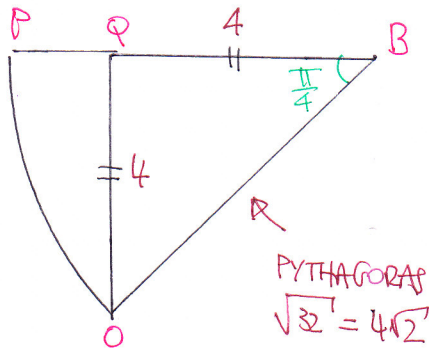 P Q 4 B
π/4
4
PYTHAGORAS
√32 = 4√2
O